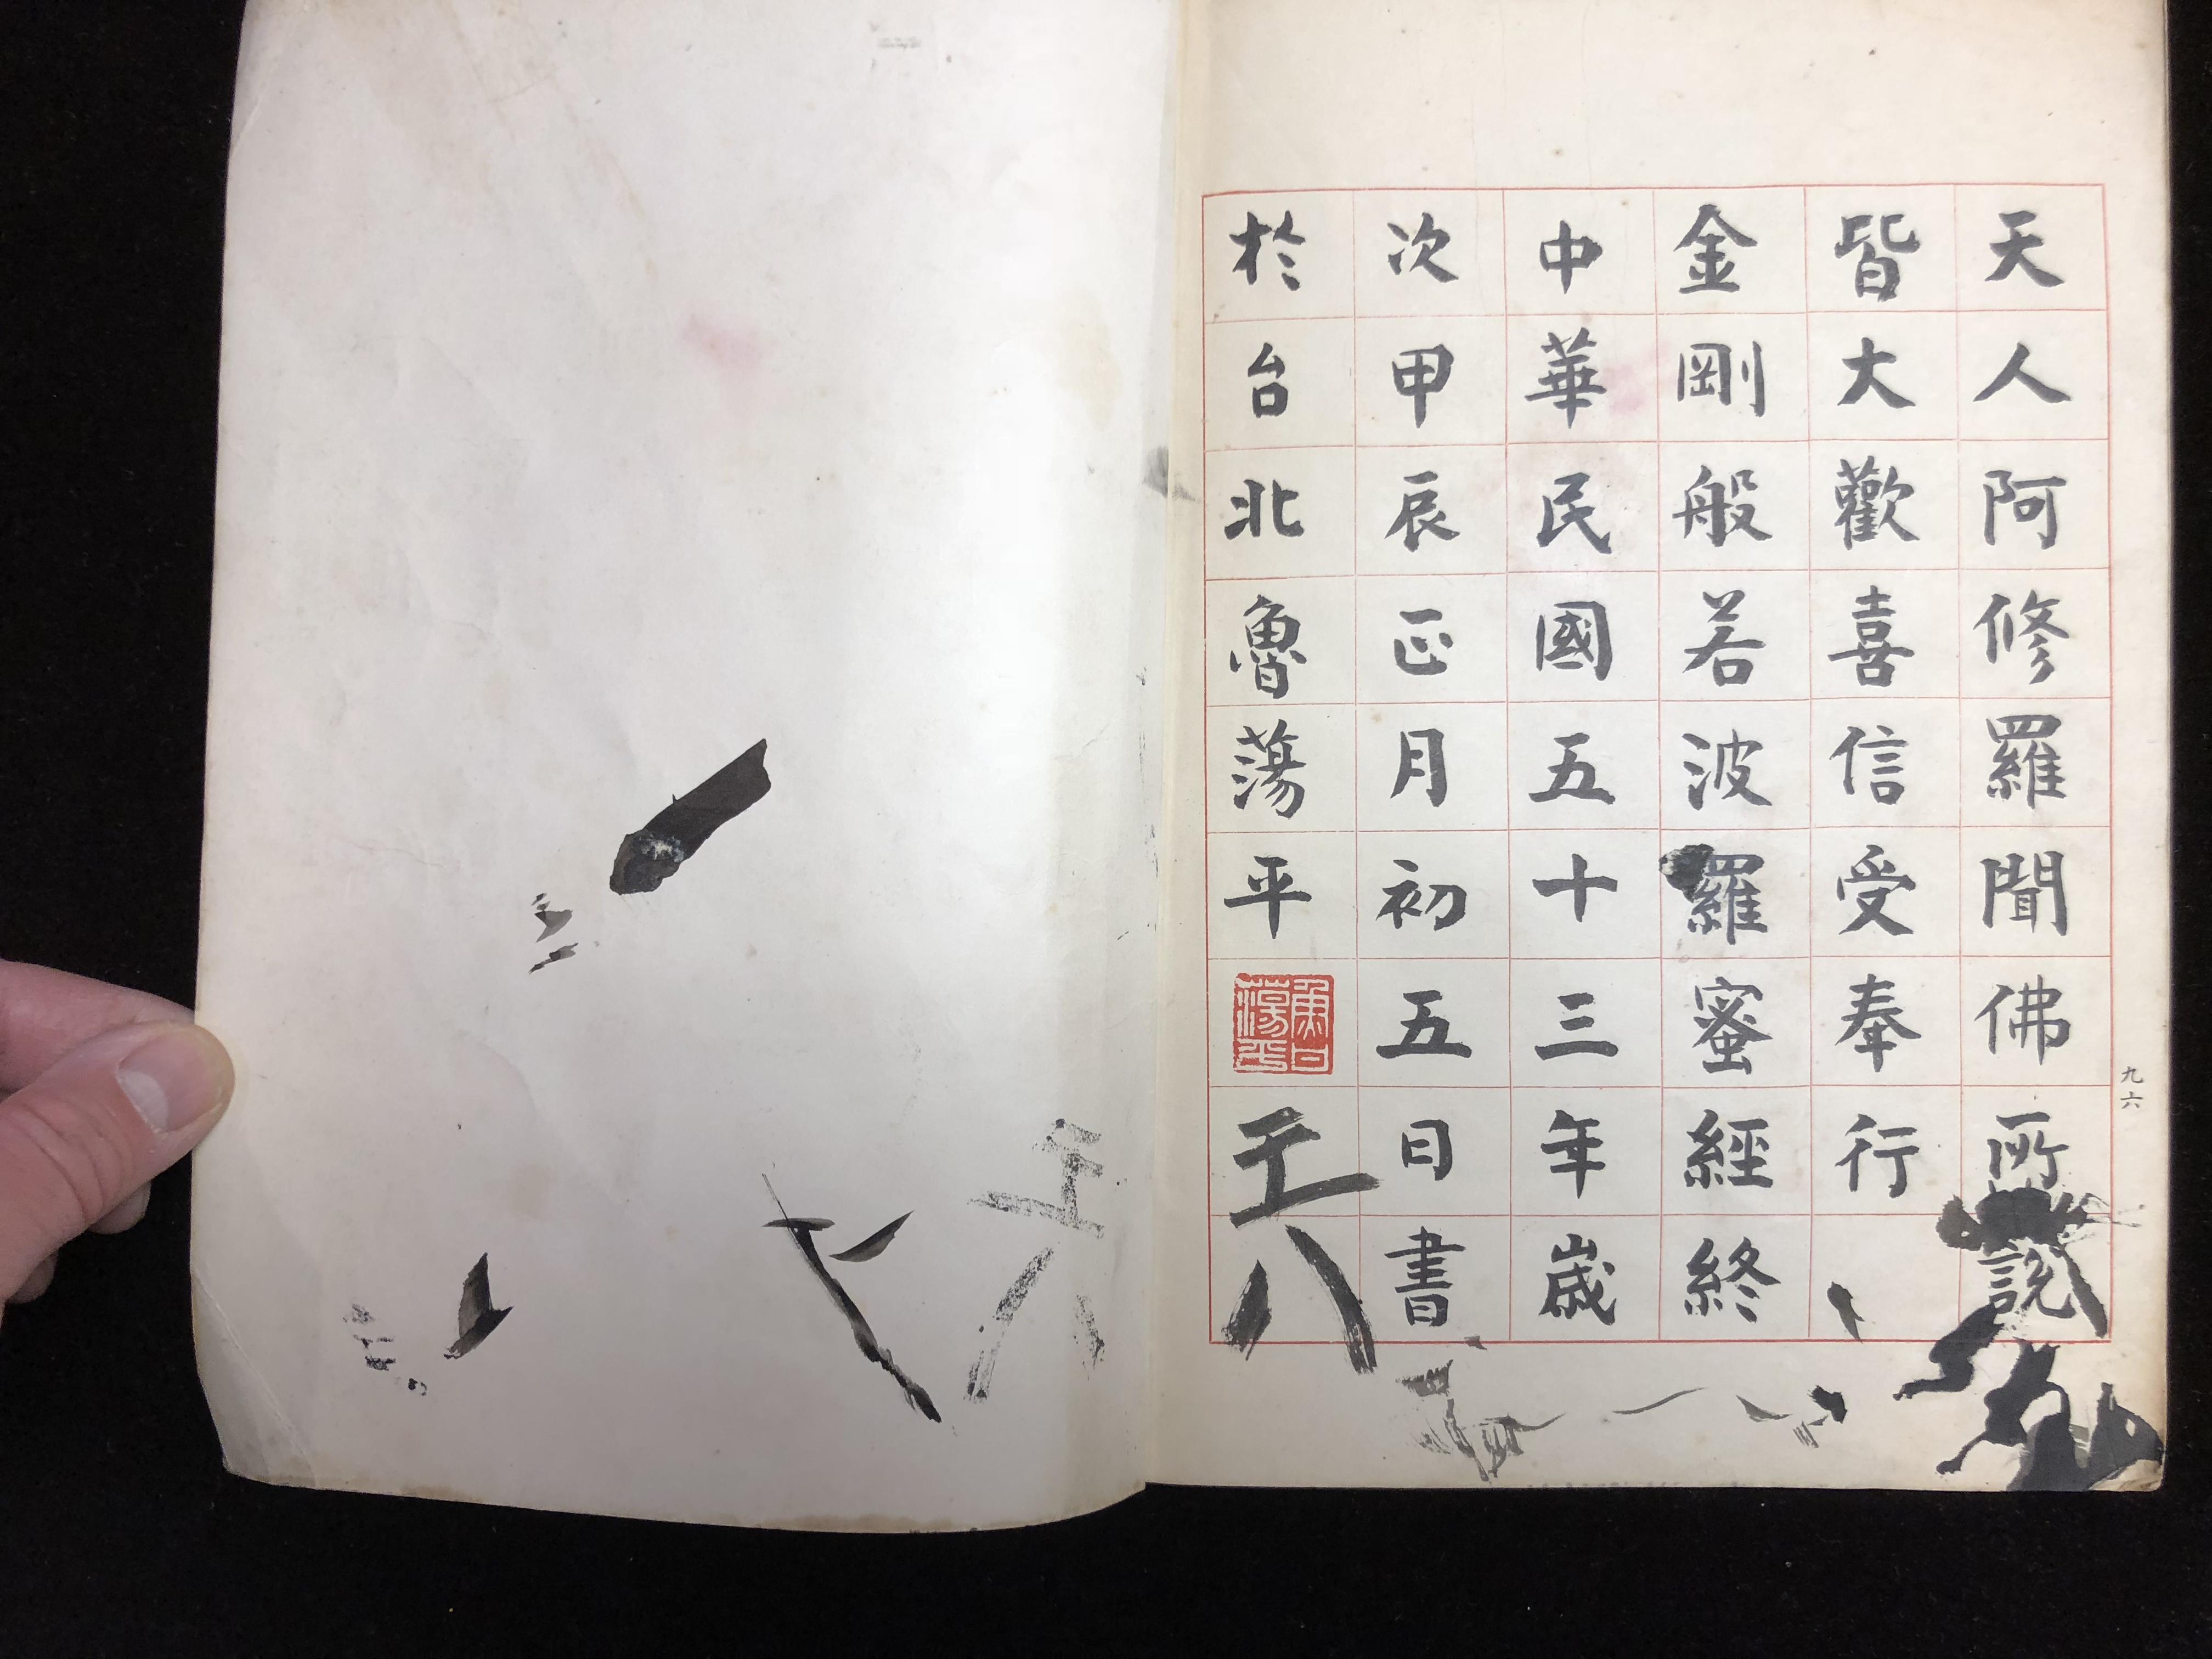 天人阿修羅聞佛所說
皆大歡喜信受奉行
金剛般若波羅蜜經終
中華民國五十三年歲
次甲辰正月初五日書
於台北魯蕩平
魯蕩平
九六